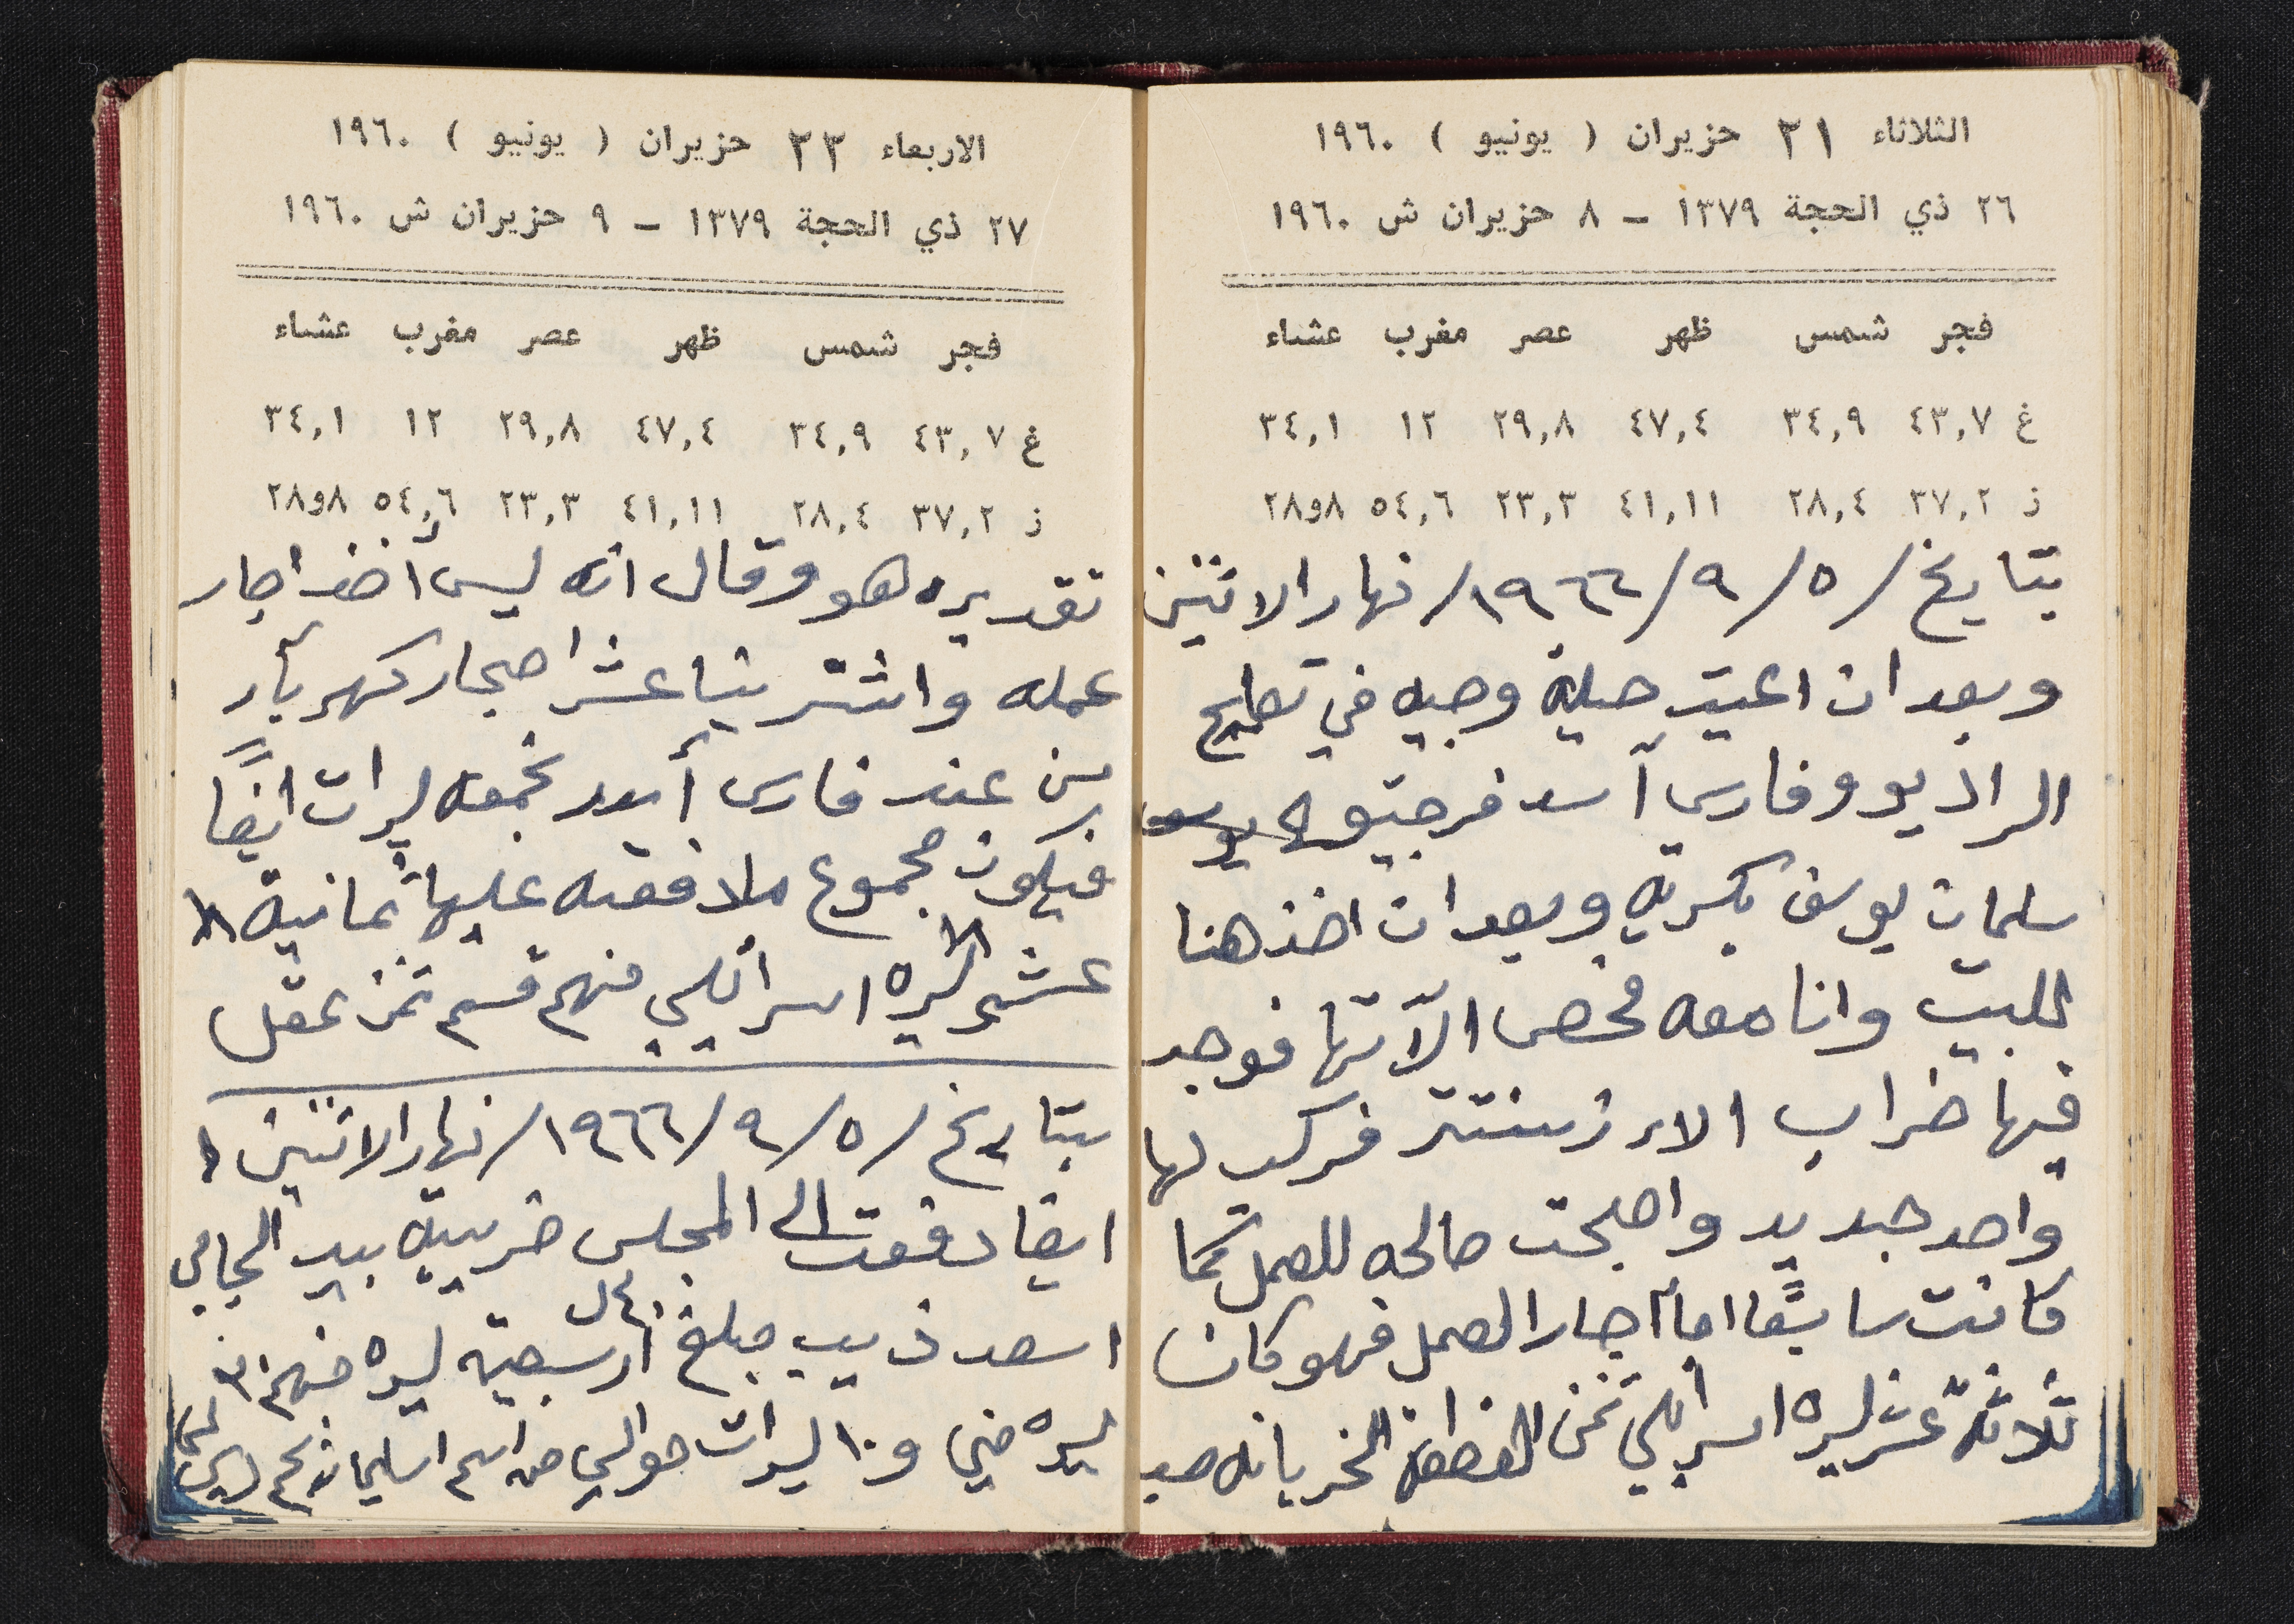 الثلاثاء ٢١ حزيران ( يونيو ) ١٩٦٠
٢٦ ذي الحجة ١٣٧٩ – ٨ حزيران ش ١٩٦٠
فجر شمس ظهر عصر مغرب عشاء
غ ٤٣,٧ ٣٤,٩ ٤٧,٤ ٢٩,٨ ١٢ ٣٤,١
ز ٣٧,٢ ٢٨,٤ ٤١,١١ ٢٣,٣ ٥٤,٦ ٨و٢٨
بتاريخ / ٥ / ٩ / ١٩٦٦ / نهار الاثنين
وبعد ان اعيت حيلة وجيه في تصليح
الراديو وفارس أسد فرجيته
سلمان يوسف بكريه وبعد ان اخذ هنا
للبيت وانا معه فحص الآتها فوجد
فيها خراب الاء فركب لها
واحد جديد واصبحت صالحه للعمل كما
كانت سابقًا اما أجار العمل فهو كان
ثلاثة عشر ليره اسرائلي ثمن القطعة الخربانه حسب
الاربعاء ٢٢ حزيران ( يونيو ) ١٩٦٠
٢٧ ذي الحجة ١٣٧٩ – ٩ حزيران ش ١٩٦٠
فجر شمس ظهر عصر مغرب عشاء
غ ٤٣,٧ ٣٤,٩ ٤٧,٤ ٢٩,٨ ١٢ ٣٤,١
ز ٣٧,٢ ٢٨,٤ ٤١,١١ ٢٣,٣ ٥٤,٦ ٨و٢٨
تقديره هو وقال انه ليس أخذ اجار
عمله واشترينا عشر احجار كهربأ
من عند فارس أسد بخمسه ليرات ايضًا
فيكون مجموع ما دفعته عليها ثمانية
عشر ليره اسرائلي منهم قسم ثمن عقل
بتاريخ / ٥ / ٩ / ١٩٦٦ / نهار الاثنين
ايضا دفعت الى المجلس ضريبيه بيد الجابي
اسعد ذيب مبلغ أربعين ليره منهم ٣٠
ليره مني و ١٠ ليرات حوالي من اسم سليمان نجم